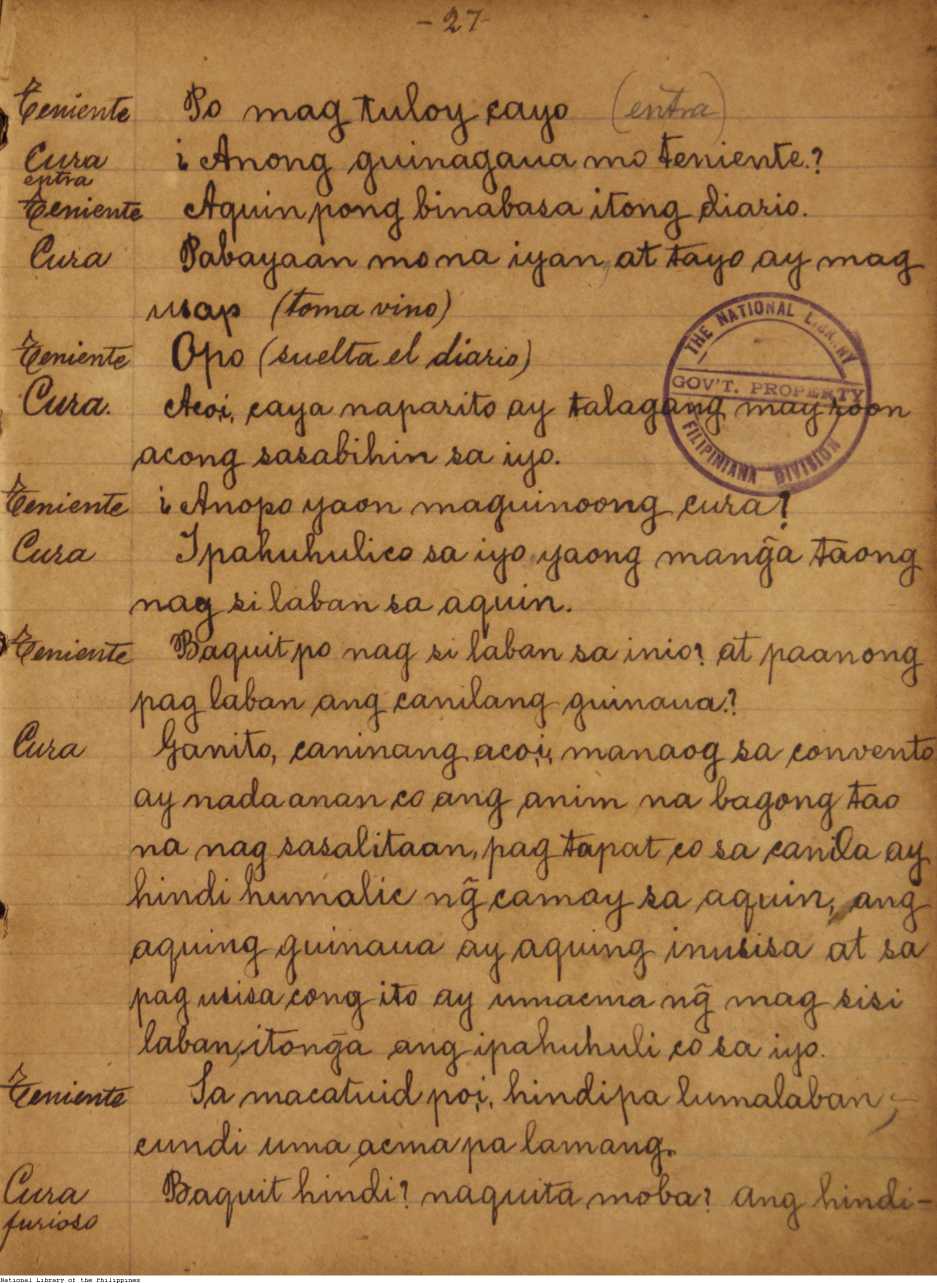 - 27 -
Teniente Po mag tuloy cayo (entra)
Cura ¿ Anong guinagaua mo teniente.?
entra
Teniente Aquin pong binabasa itong diario.
Cura Pabayaan mo na iyan, at tayo ay mag
usap (toma vino)
Teniente Opo (suelta el diario)
Cura. Acoi, caya naparito ay talagang may roon
acong sasabihin sa iyo.
THE NATIONAL LIBRARY
GOV'T. PROPERTY
FILIPINIANA DIVISION
Teniente ¿ Anopo yaon maguinoong cura?
Cura Ipahuhulico sa iyo yaong mang̃a taong
nag si laban sa aquin.
Teniente Baquit po nag si laban sa inio? at paanong
pag laban ang canilang guinaua.?
Cura Ganito, caninang acoi, manaog sa convento
ay nada anan co ang anim na bagong tao
na nag sasalitaan, pag tapat co sa canila ay
hindi humalic ng̃ camay sa aquin, ang
aquing guinaua ay aquing inusisa at sa
pag usisa cong ito ay umacma ng̃ mag sisi
laban, itong̃a ang ipahuhuli co sa iyo.
Teniente Sa macatuid poi, hindi pa lumalaban,-
cundi uma acma pa lamang.
Cura Baquit hindi? naquita moba? ang hindi-
furioso
National Library of the Philippines